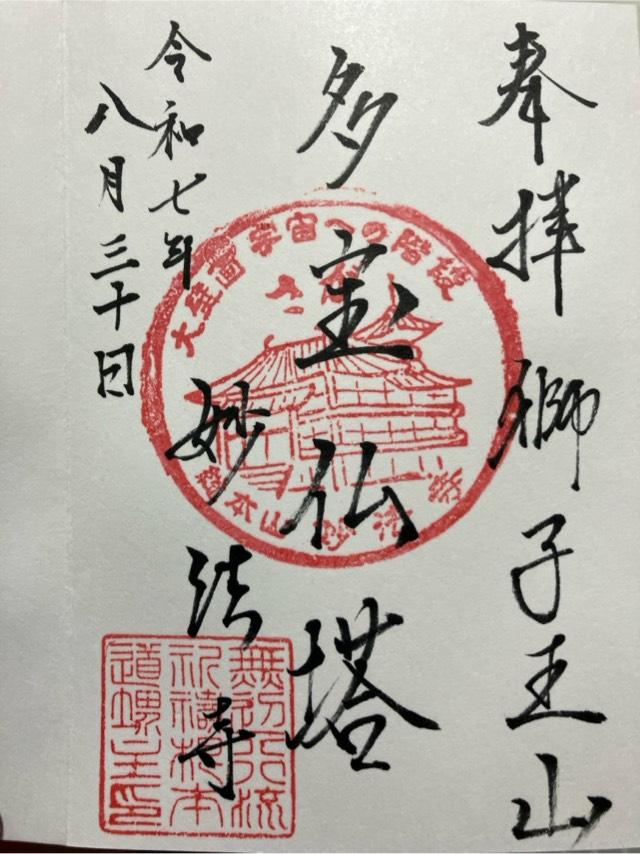 奉拝 獅子王山
多宝仏塔
妙法寺
令和七年
八月三十日
大壁画宇宙への階段
総本山 妙法寺
道場主印